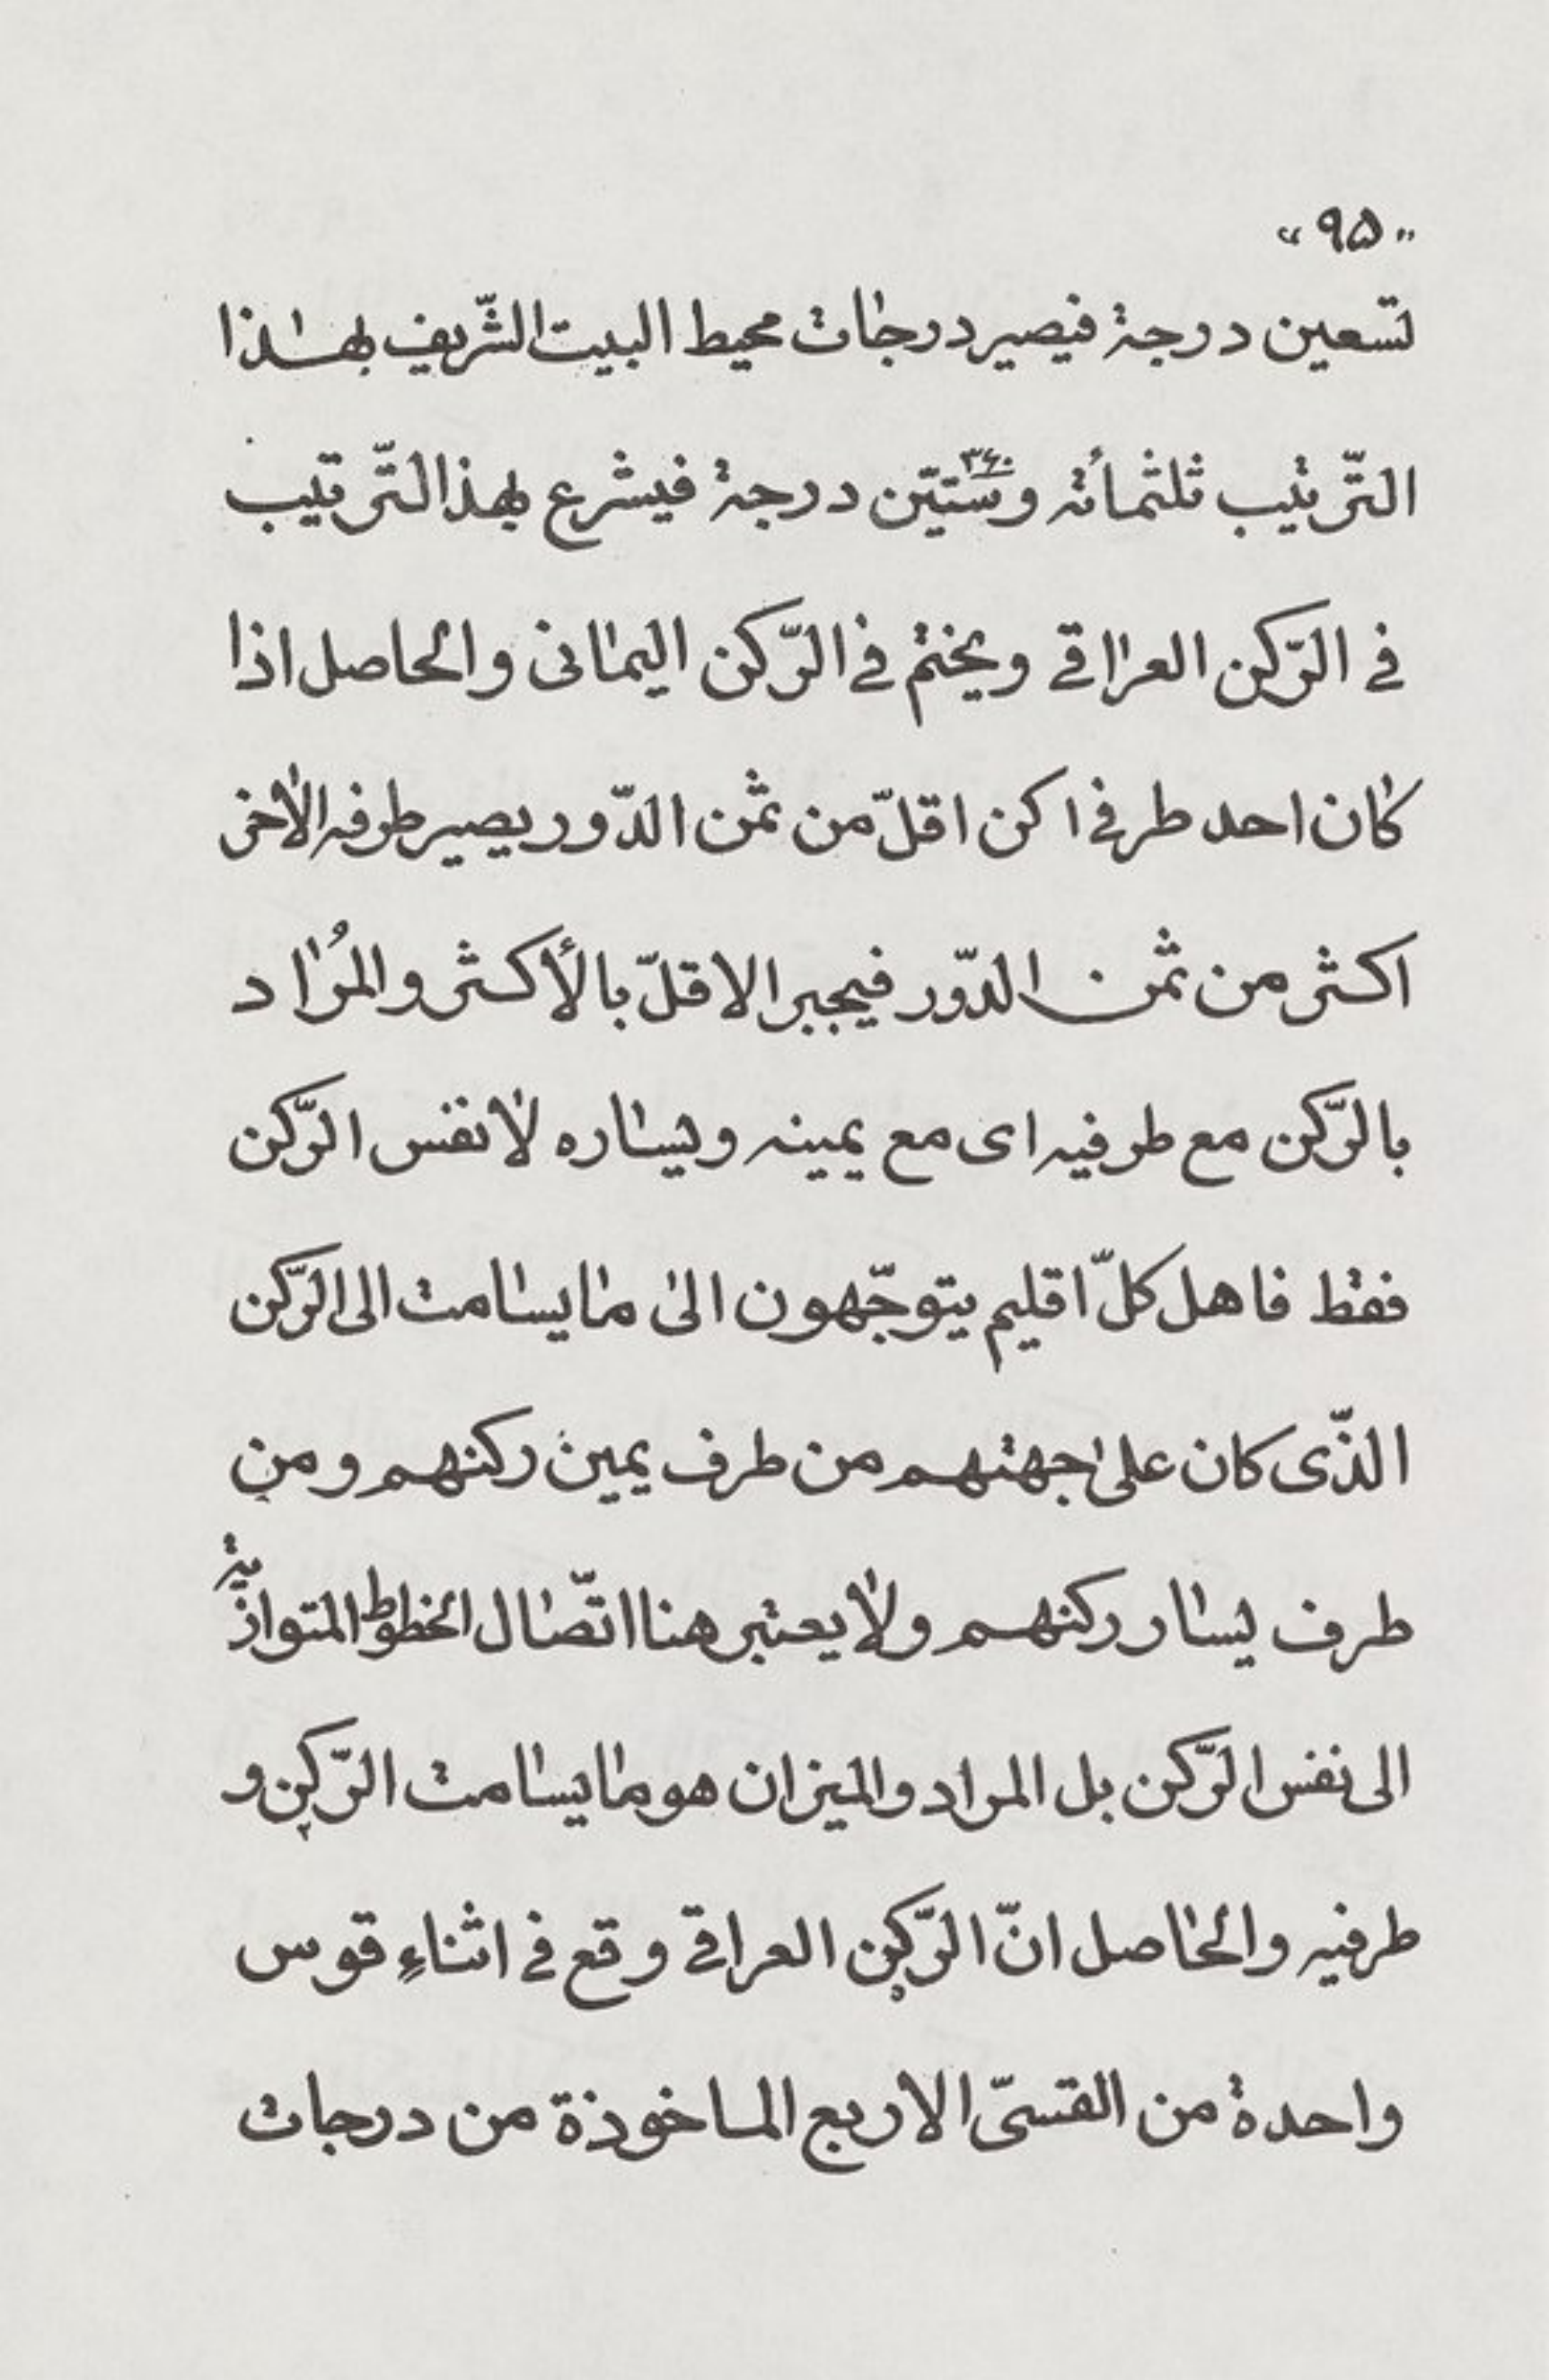 "۹۵"
تسعین درجة فیصیر درجات محیط البیت الشّریف بهٰذا
التّرتیب ثلثمأته وستّین ۳۶۰ درجة فیشرع بهذا لتّرتیب
فی الرّکن العراقی ویختم فی الرّکن الیمانی والحاصل اذا
کان احد طرفی ا کن اقلّ من ثمن الدّور یصیر طرفه الأخر
اکثر من ثمن الدّور فیجبر الاقلّ بالأکثر والمُراد
بالرّکن مع طرفیه ای مع یمینه ویساره لا نفس الرّکن
فقط فاهل کلّ اقلیم یتوجّهون الیٰ ما یسامت الی الرّکن
الذّی کان علیٰ جهتهم من طرف یمین رکنهم ومن
طرف یسار رکنهم ولا یعتبر هنا اتّصال الخطوط المتوازیة
الی نفس الرّکن بل المراد والمیزان هو ما یسامت الرّکن و
طرفیه والحاصل انّ الرّکن العراقی وقع فی اثناءِ قوس
واحدة من القسیّ الاربع الماخوذة من درجات